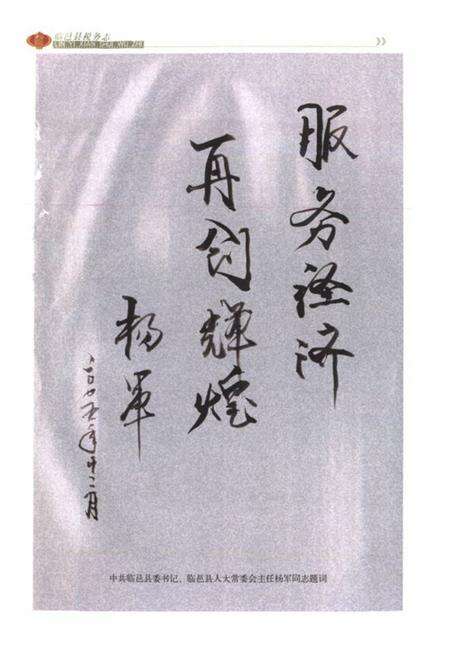 临邑县税务志
LIN YI XIAN SHUI WU ZHI
服务经济
再创辉煌
杨军
二〇〇五年十二月
中共临邑县委书记、临邑县人大常委会主任杨军同志题词